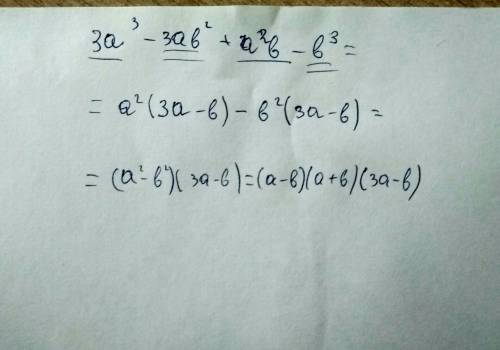 3a³ - 3ab² + a²b - b³ =
= a²(3a-b) - b²(3a-b) =
= (a²-b²)(3a-b)=(a-b)(a+b)(3a-b)